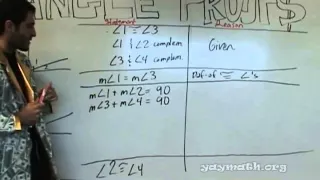 ANGLE PROOFS
Statement Reason
∠1 ≅ ∠3
∠1 & ∠2 complem
Given
∠3 & ∠4 complem
m∠1 = m∠3 Def. of ≅ ∠'s
m∠1 + m∠2 = 90
m∠3 + m∠4 = 90
∠2 ≅ ∠4
yaymath.org